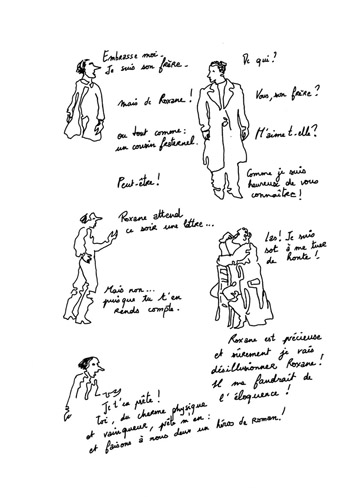 Embrasse moi -
Je suis son frère -
De qui ?
mais de Roxane !
Vous, son frère ?
ou tout comme :
un cousin fraternel.
M'aime t-elle ?
Peut-être !
Comme je suis
heureuse de vous
connaître !
Roxane attend
ce soir une lettre...
Las ! Je suis
sot à me tuer
de honte !
Mais non...
puisque tu t'en
rends compte.
Roxane est précieuse
et sûrement je vais
désillusionner Roxane !
Il me faudrait de
l'éloquence !
Je t'en prête !
Toi, du charme physique
et vainqueur, prête m'en :
et faisons à nous deux un héros de Roman !